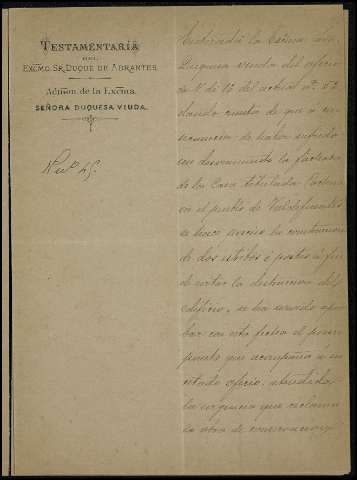 TESTAMENTARÍA
DEL
EXCMO. SR. DUQUE DE ABRANTES
Admon. de la Excma.
SEÑORA DUQUESA VIUDA.
Num.º 45.
Enterada la Señora
Duquesa viuda del oficio
de V. de 16 del actual nº 52
dando cuenta de que á con
secuencia de haber sufrido
un desnivel la fachada
de la Casa titulada
en el pueblo de Valdefuentes
se hace precisa la construccion
de dos estribos ó postes á fin
de evitar la destruccion del
edificio, se ha servido apro
bar con esta fecha el presu
puesto que acompaña á su
citado oficio, atendida
la urgencia que reclama
la obra de conservacion